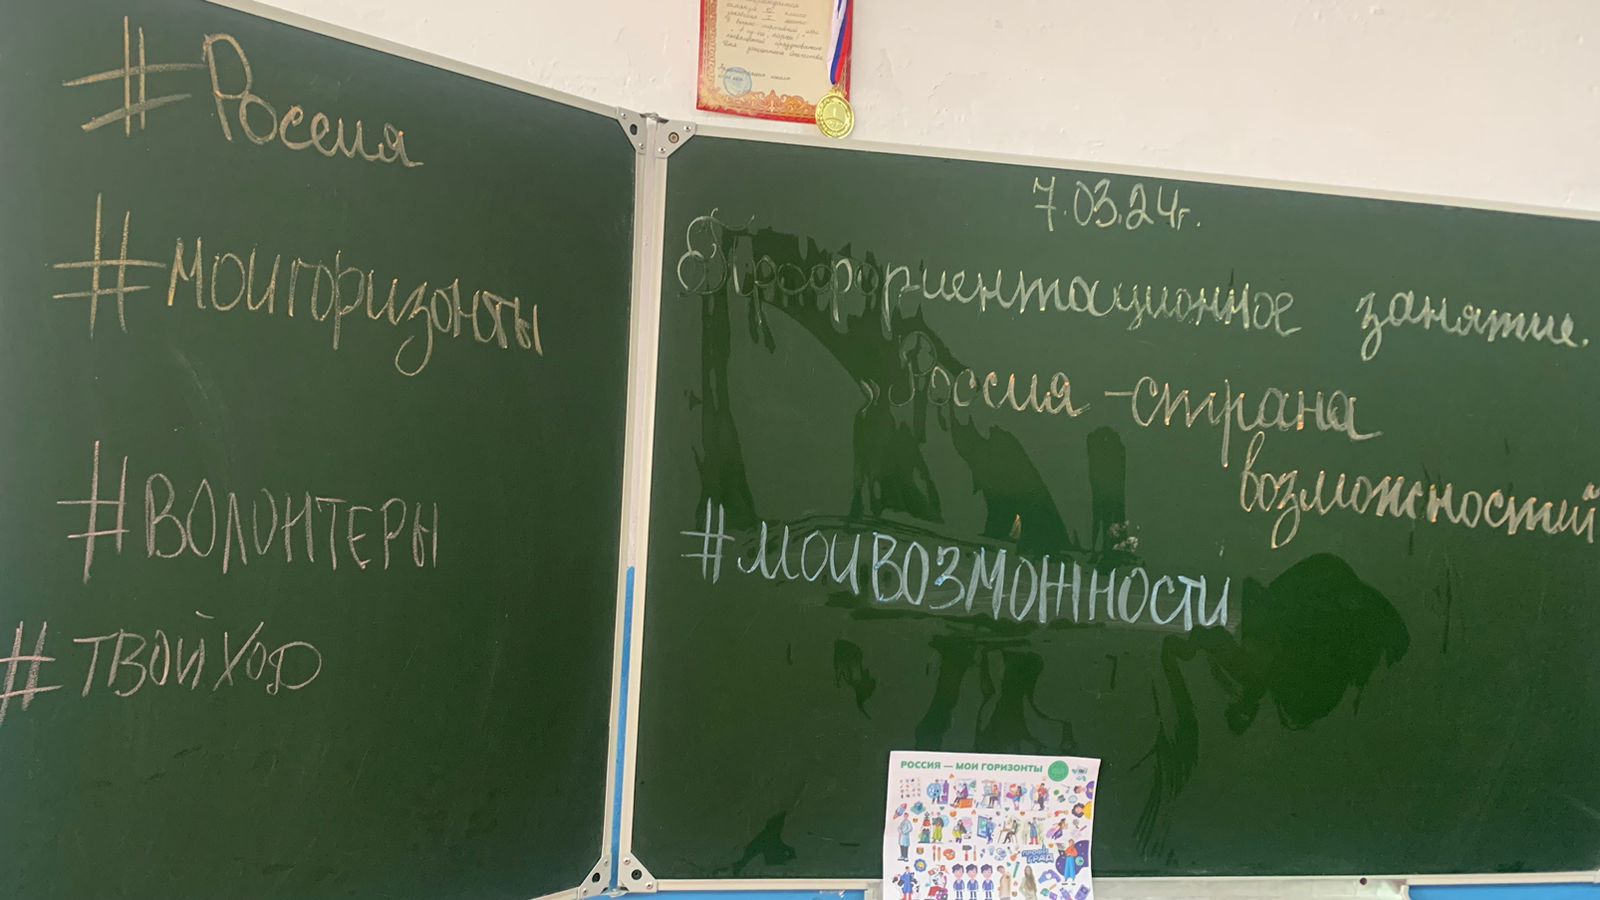 #Россия
#моигоризонты
#ВОЛОНТЕРЫ
#ТВОЙХОД
7.03.24г.
Профориентационное занятие.
"Россия - страна
возможностей
#моивозможности
РОССИЯ — МОИ ГОРИЗОНТЫ